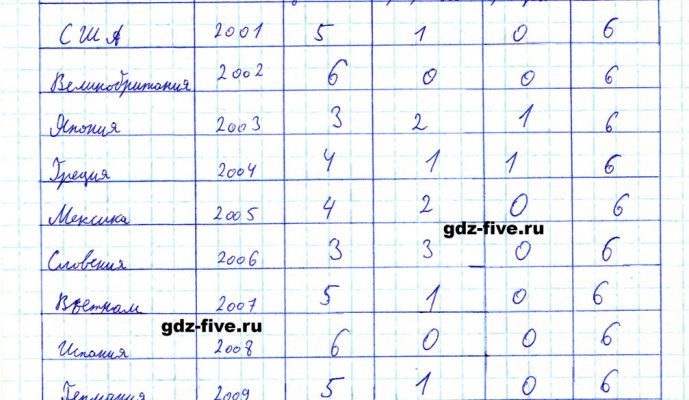 США 2001 5 1 0 6
Великобритания 2002 6 0 0 6
Япония 2003 3 2 1 6
Греция 2004 4 1 1 6
Мексика 2005 4 2 0 6
gdz-five.ru
Словения 2006 3 3 0 6
Вьетнам 2007 5 1 0 6
gdz-five.ru
Испания 2008 6 0 0 6
Германия 2009 5 1 0 6